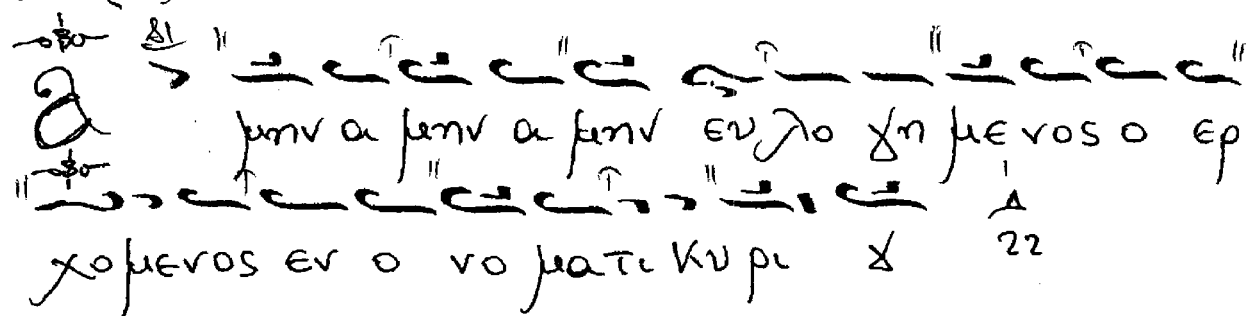 Α μην α μην α μην ευ λο γη με νος ο ερ
χο με νος εν ο νο μα τι Κυ ρι ȣ